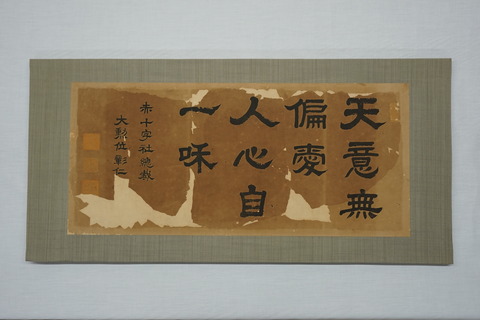 天意無
偏愛
人心自
一味
赤十字社総裁
大勲位彰仁